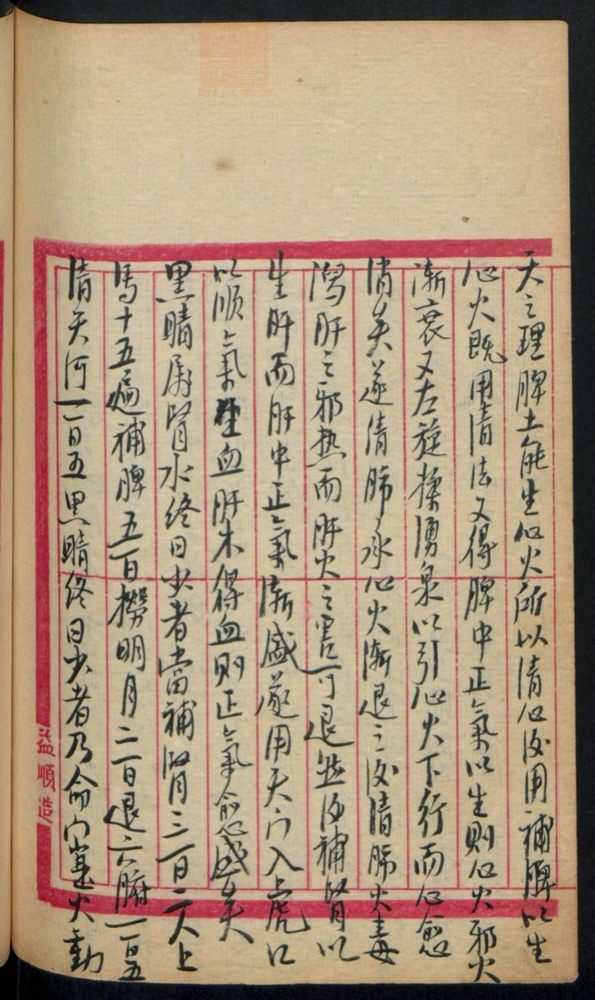 天之理脾土能生心火所以清心必用補脾以生
心火既用清法又得脾中正氣以生則心火邪火
漸衰又左旋揉湧泉以引心火下行而心愈
清矣遂清肺承心火漸退之後清肺火毒
瀉肝之邪熱而肝火之害可退然後補腎以
生肝而肝中正氣漸盛遂用天門入虎口
以順氣生血肝木得血則正氣愈盛矣
黑睛屬腎水終日少者當補腎三百二人上
馬十五遍補脾五百撈明月二百退六腑一百五
清天河一百五黑睛終日少者乃命門火動
益順造